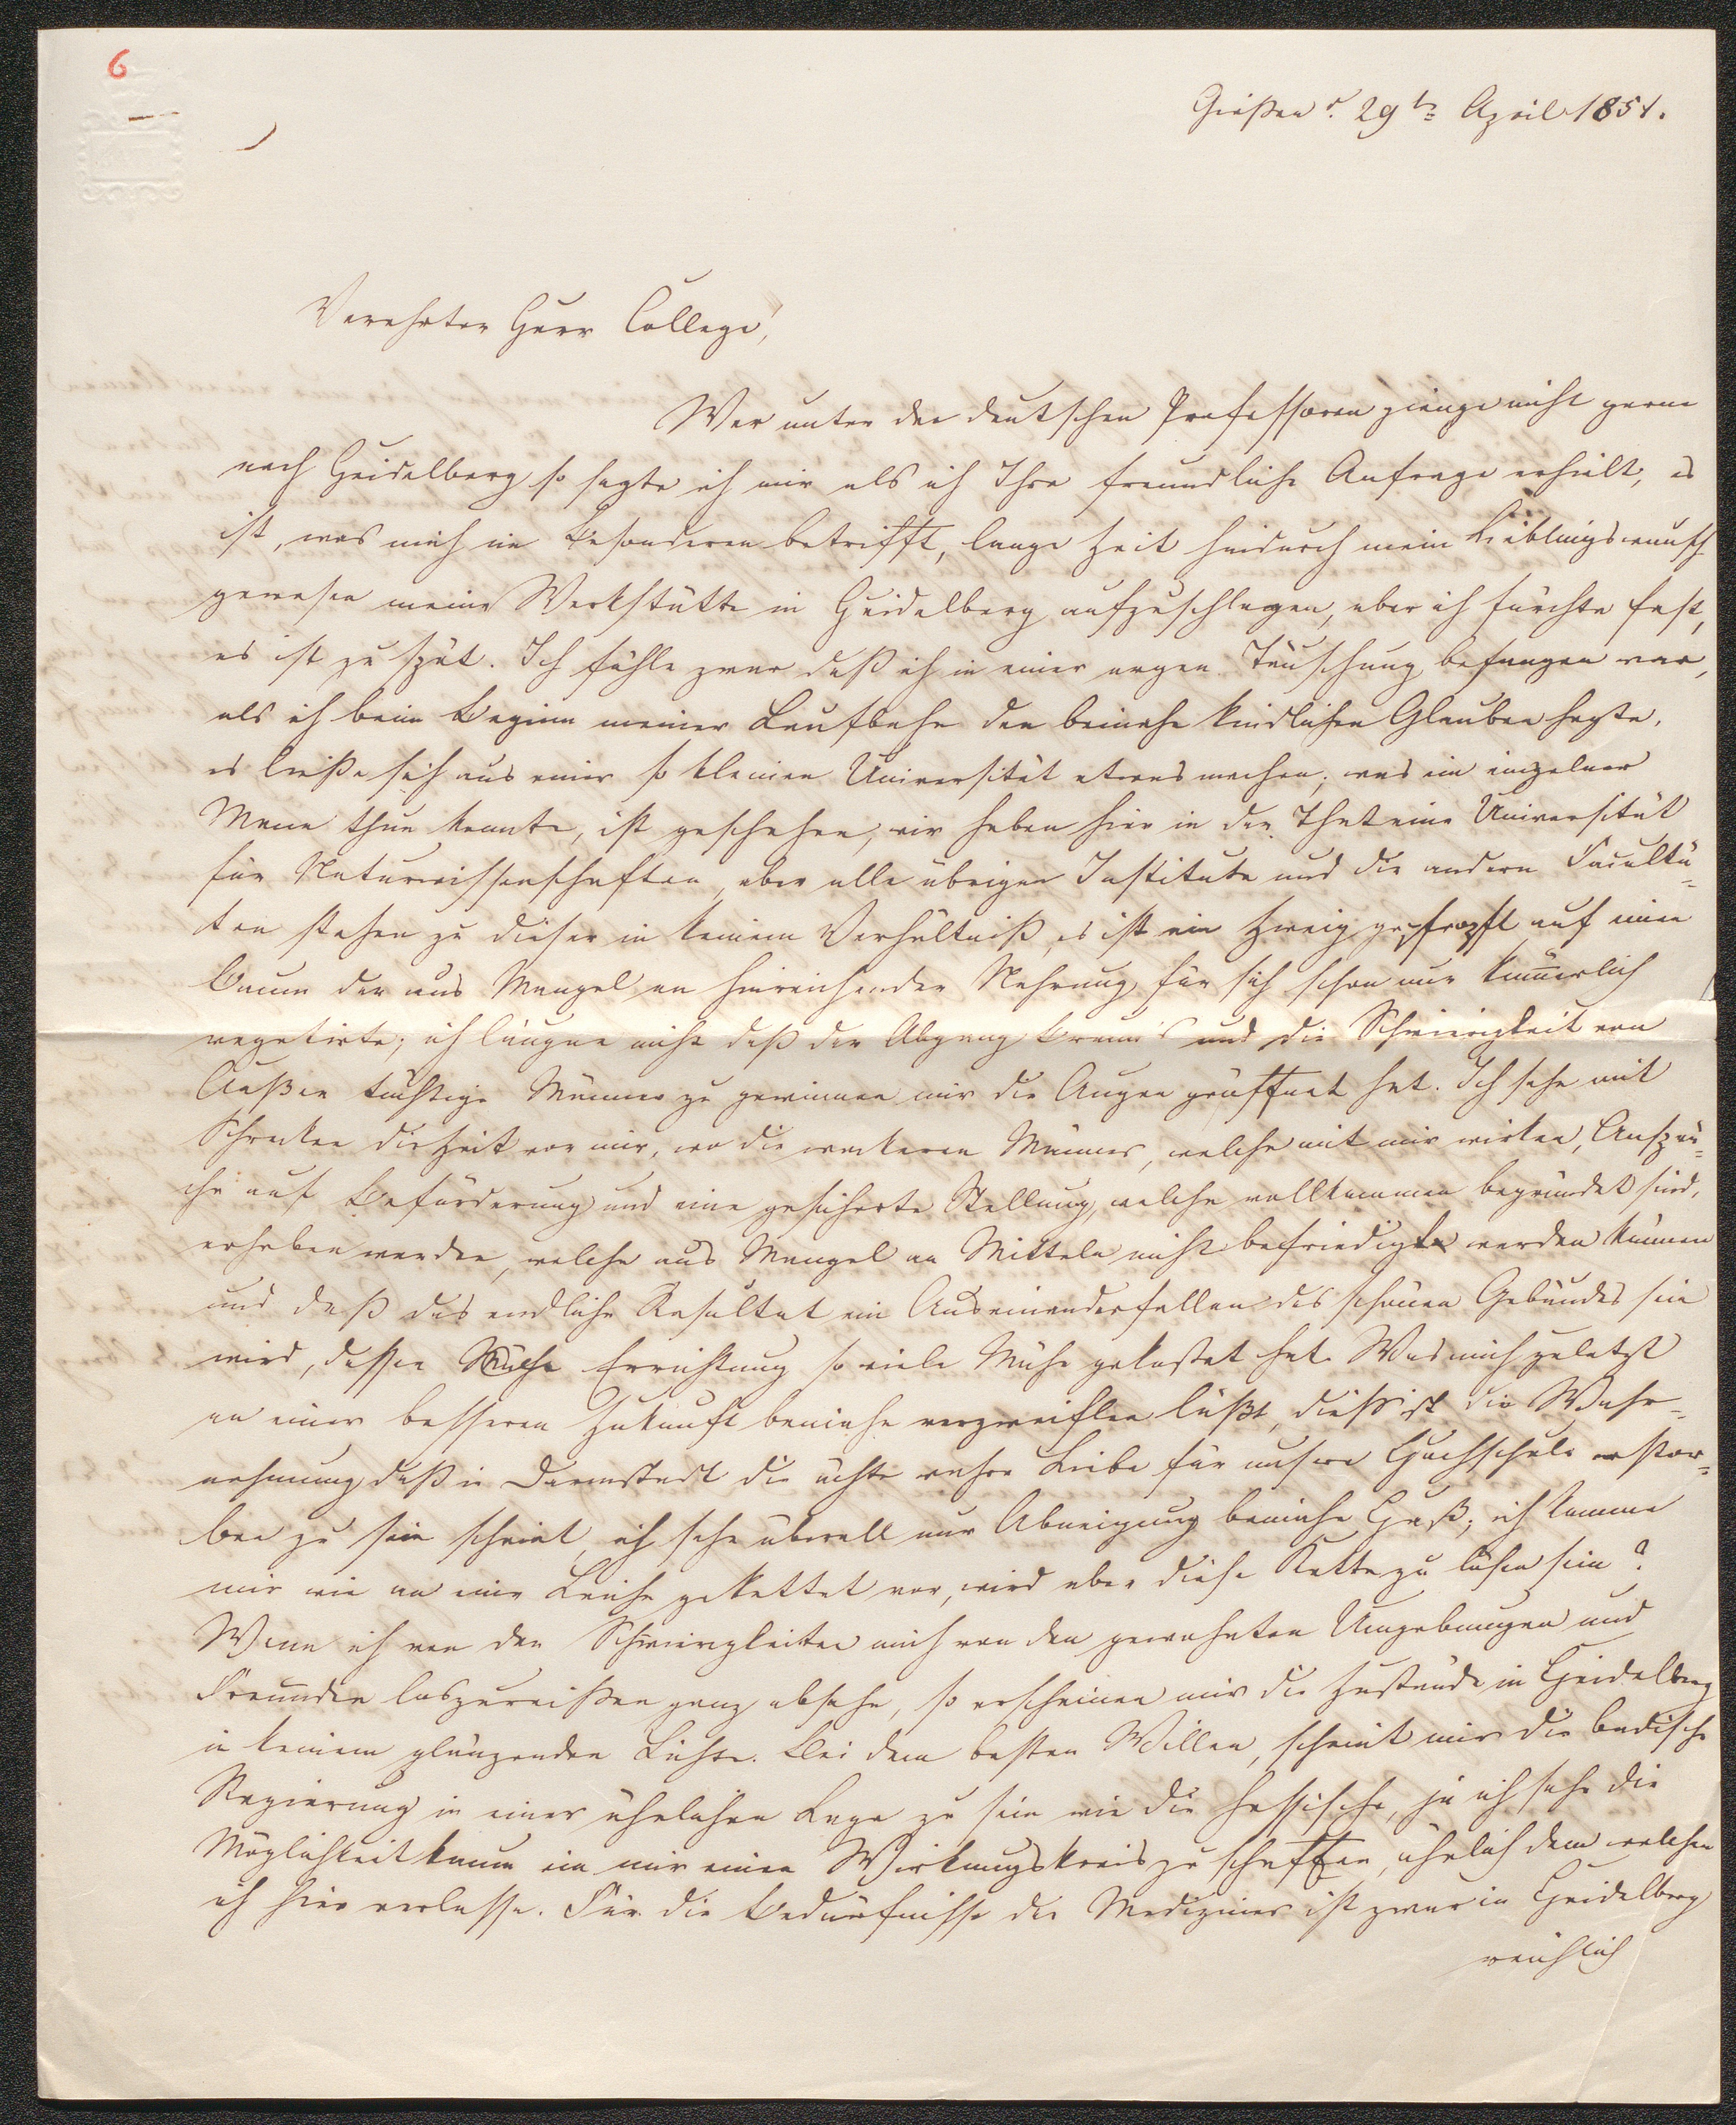 6
Gießen d. 29ten April 1851.
Verehrter Herr College,
Wer unter den deutschen Professoren gienge nicht gerne
nach Heidelberg so sagte ich mir als ich Ihre freundliche Anfrage erhielt, es
ist, was mich im Besonderen betrifft, lange Zeit hindurch mein Lieblingswunsch
gewesen meine Werkstätte in Heidelberg aufzuschlagen, aber ich fürchte fast,
es ist zu spät. Ich fühle zwar daß ich in einer argen Täuschung befangen war,
als ich beim Beginn meiner Laufbahn den beinahe kindlichen Glauben hegte,
es ließe sich aus einer so kleinen Universität etwas machen; was ein einzelner
Mann thun konnte, ist geschehen, wir haben hier in der That eine Universität
für Naturwissenschaften, aber alle übrigen Institute und die andern Facultä-
ten stehen zu dieser in keinem Verhältniß, es ist ein Zweig gepfropft auf einen
Baum der aus Mangel an hinreichender Nahrung für sich schon nur kümerlich
vegetirte; ich läugne nicht daß der Abgang Braun's und die Schwierigkeit von
Außen tüchtige Männer zu gewinnen mir die Augen geöffnet hat. Ich sehe mit
Schrecken die Zeit vor mir, wo die wackeren Männer, welche mit mir wirken, Ansprü-
che auf Beförderung und eine gesicherte Stellung, welche vollkommen begründet sind,
erheben werden, welche aus Mangel an Mitteln nicht befriedigt werden können
und daß das endliche Resultat ein Auseinanderfallen des schönen Gebäudes sein
wird, dessen Errichtung so viele Mühe gekostet hat. Was mich zuletzt
an einer besseren Zukunft beinahe verzweiflen läßt, dieß ist die Wahr-
nehmung daß in Darmstadt die ächte wahre Liebe für unsere Hochschule erstor-
ben zu sein scheint, ich sehe überall nur Abneigung beinahe Haß; ich komme
mir wie an eine Leiche gekettet vor, wird aber diese Kette zu lösen sein?
Wenn ich von den Schwierigkeiten mich von den gewohnten Umgebungen und
Freunden loszureißen ganz absehe, so erscheinen mir die Zustände in Heidelberg
in keinem glänzenden Lichte. Bei dem besten Willen, scheint mir die badische
Regierung in einer ähnlichen Lage zu sein wie die hessische, ja ich sehe die
Möglichkeit kaum ein mir einen Wirkungskreis zu schaffen, ähnlich dem welchen
ich hier verlasse. Für die Bedürfnisse der Mediziner ist zwar in Heidelberg
reichlich